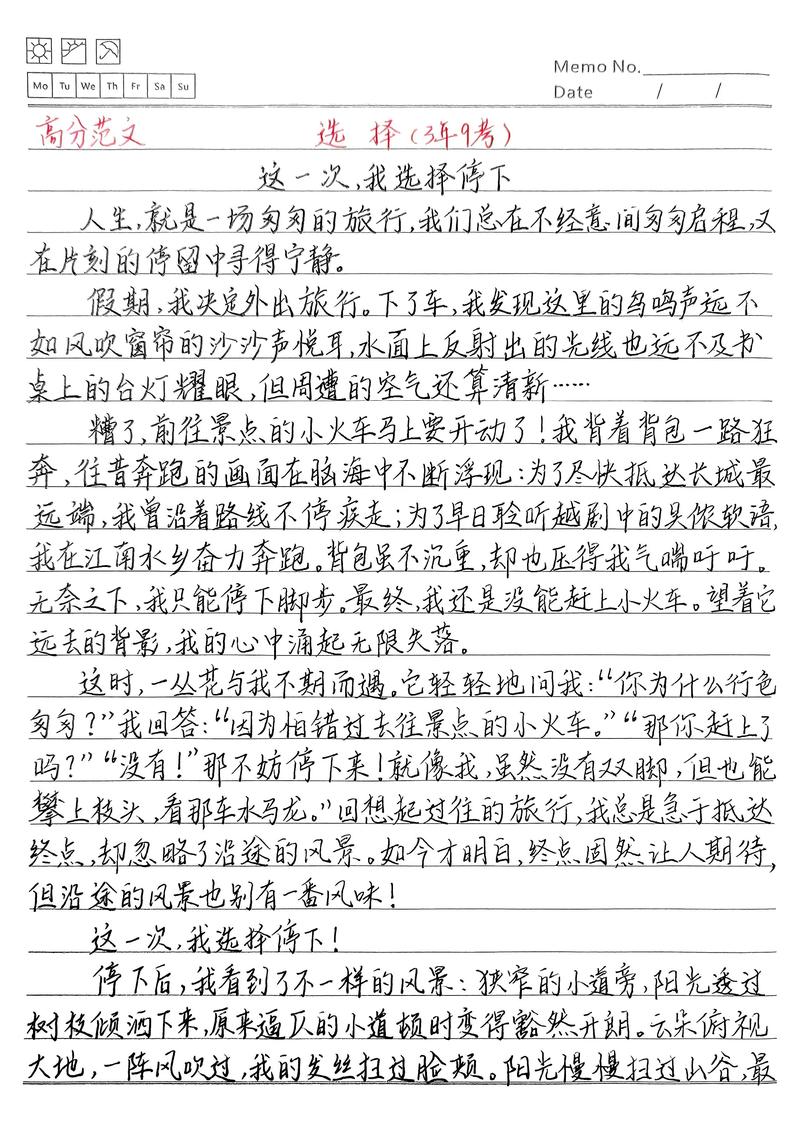 Mo Tu We Th Fr Sa Su
Memo No.
Date / /
高分范文 选 择(3年9考)
这一次,我选择停下
人生,就是一场匆匆的旅行,我们总在不经意间匆匆启程,又
在片刻的停留中寻得宁静。
假期,我决定外出旅行。下了车,我发现这里的鸟鸣声远不
如风吹窗帘的沙沙声悦耳,水面上反射出的光线也远不及书
桌上的台灯耀眼,但周遭的空气还算清新……
糟了,前往景点的小火车马上要开动了!我背着背包一路狂
奔,往昔奔跑的画面在脑海中不断浮现:为了尽快抵达长城最
远端,我曾沿着路线不停疾走;为了早日聆听越剧中的吴侬软语,
我在江南水乡奋力奔跑。背包虽不沉重,却也压得我气喘吁吁。
无奈之下,我只能停下脚步。最终,我还是没能赶上小火车。望着它
远去的背影,我的心中涌起无限失落。
这时,一丛花与我不期而遇。它轻轻地问我:“你为什么行色
匆匆?”我回答:“因为怕错过去往景点的小火车。”“那你赶上了
吗?”“没有!”那不妨停下来!就像我,虽然没有双脚,但也能
攀上枝头,看那车水马龙。”回想起过往的旅行,我总是急于抵达
终点,却忽略了沿途的风景。如今才明白,终点固然让人期待,
但沿途的风景也别有一番风味!
这一次,我选择停下!
停下后,我看到了不一样的风景:狭窄的小道旁,阳光透过
树枝倾洒下来,原来逼仄的小道顿时变得豁然开朗。云朵俯视
大地,一阵风吹过,我的发丝扫过脸颊。阳光慢慢扫过山谷,最